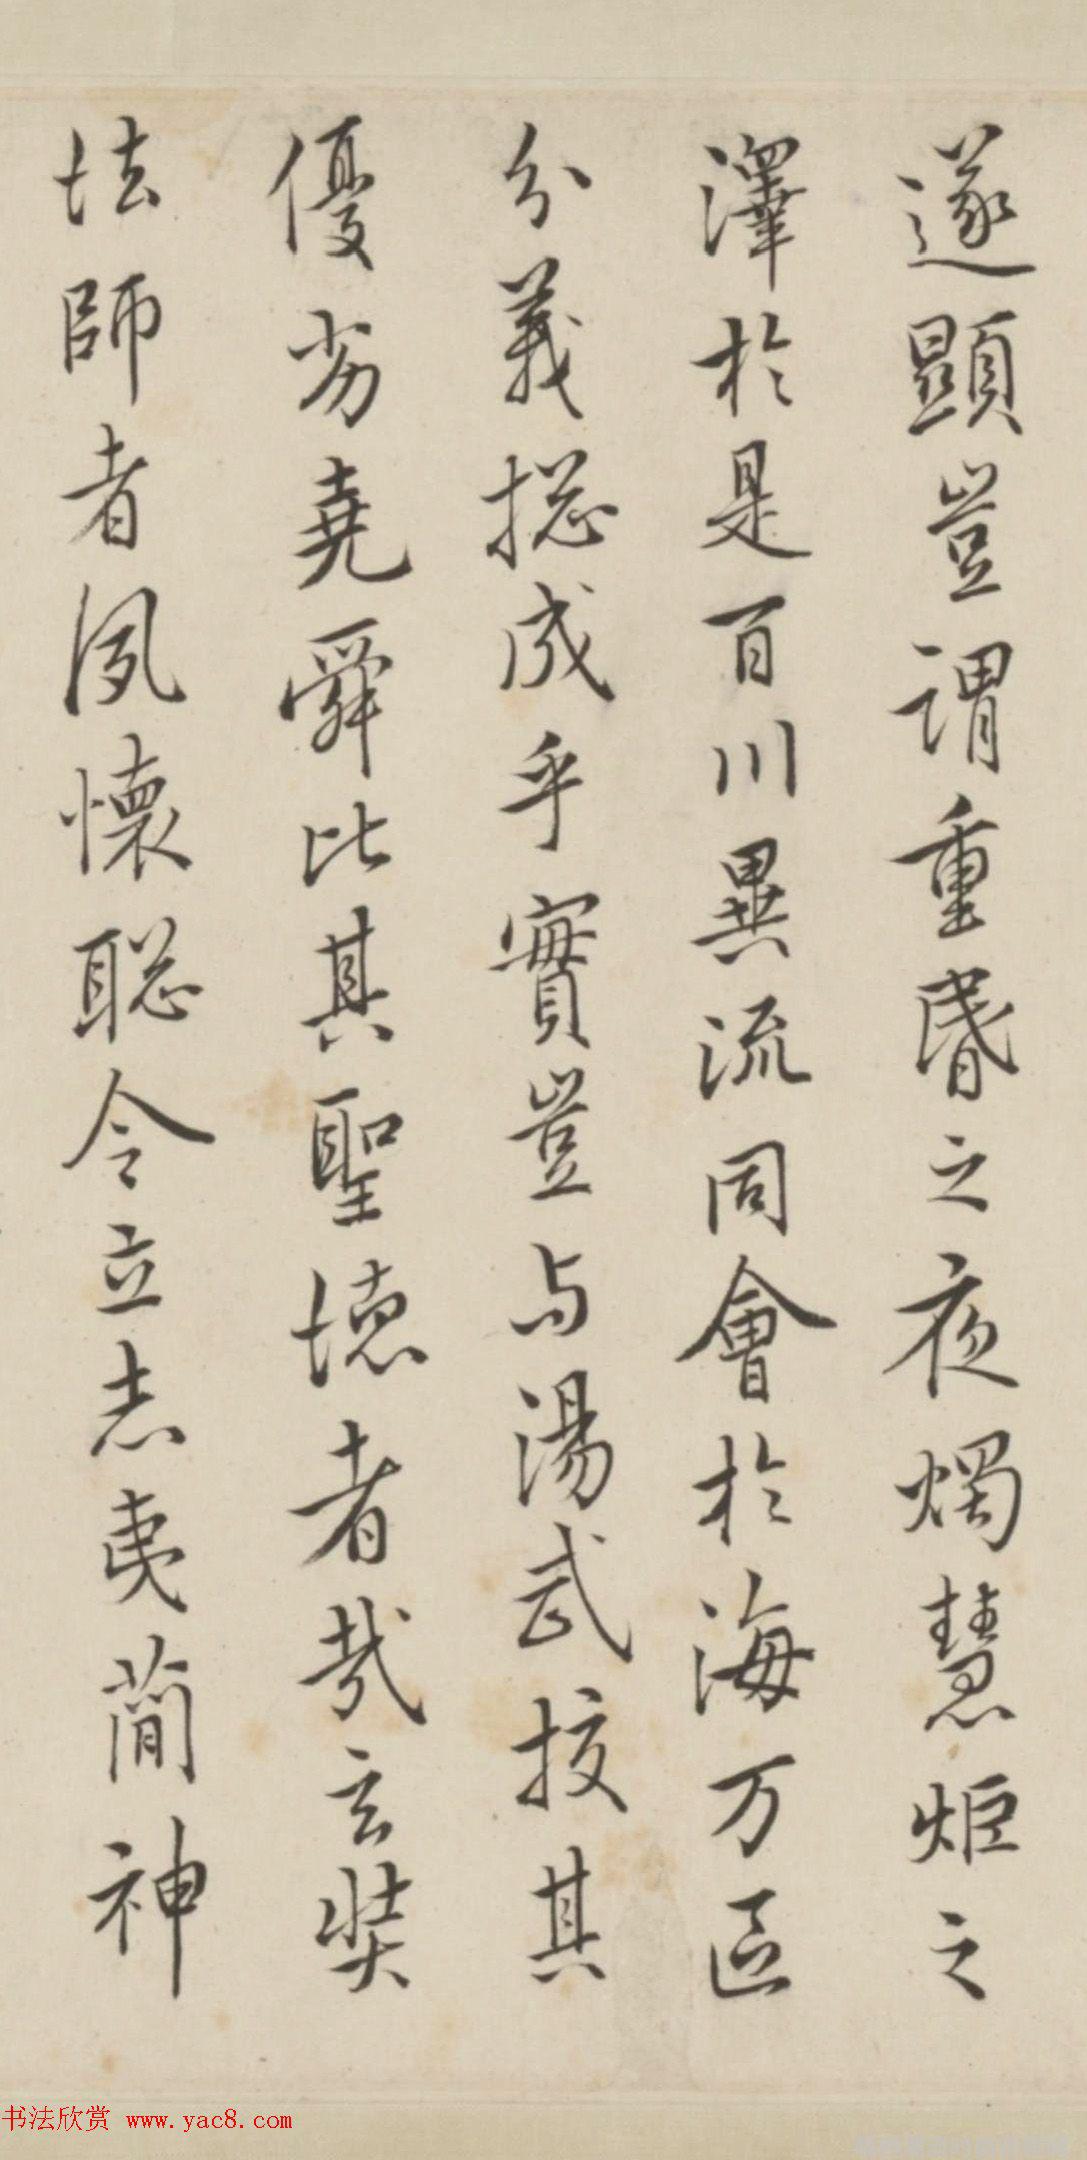 遂顯豈謂重昏之夜燭慧炬之
澤於是百川異流同會於海万區
分義捴成乎實豈与湯武挍其
優劣堯舜比其聖德者哉玄奘
法師者夙懷聡令立志夷簡神
书法欣赏 www.yac8.com